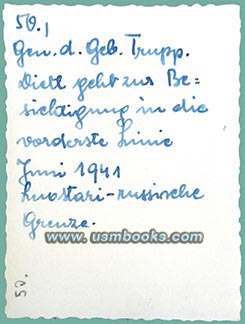 50.)
Gen. d. Geb. Trupp.
Dietl geht zur Be=
sichtigung in die
vorderste Linie
Juni 1941
Luostari-russische
Grenze.
www.usmbooks.com
50.